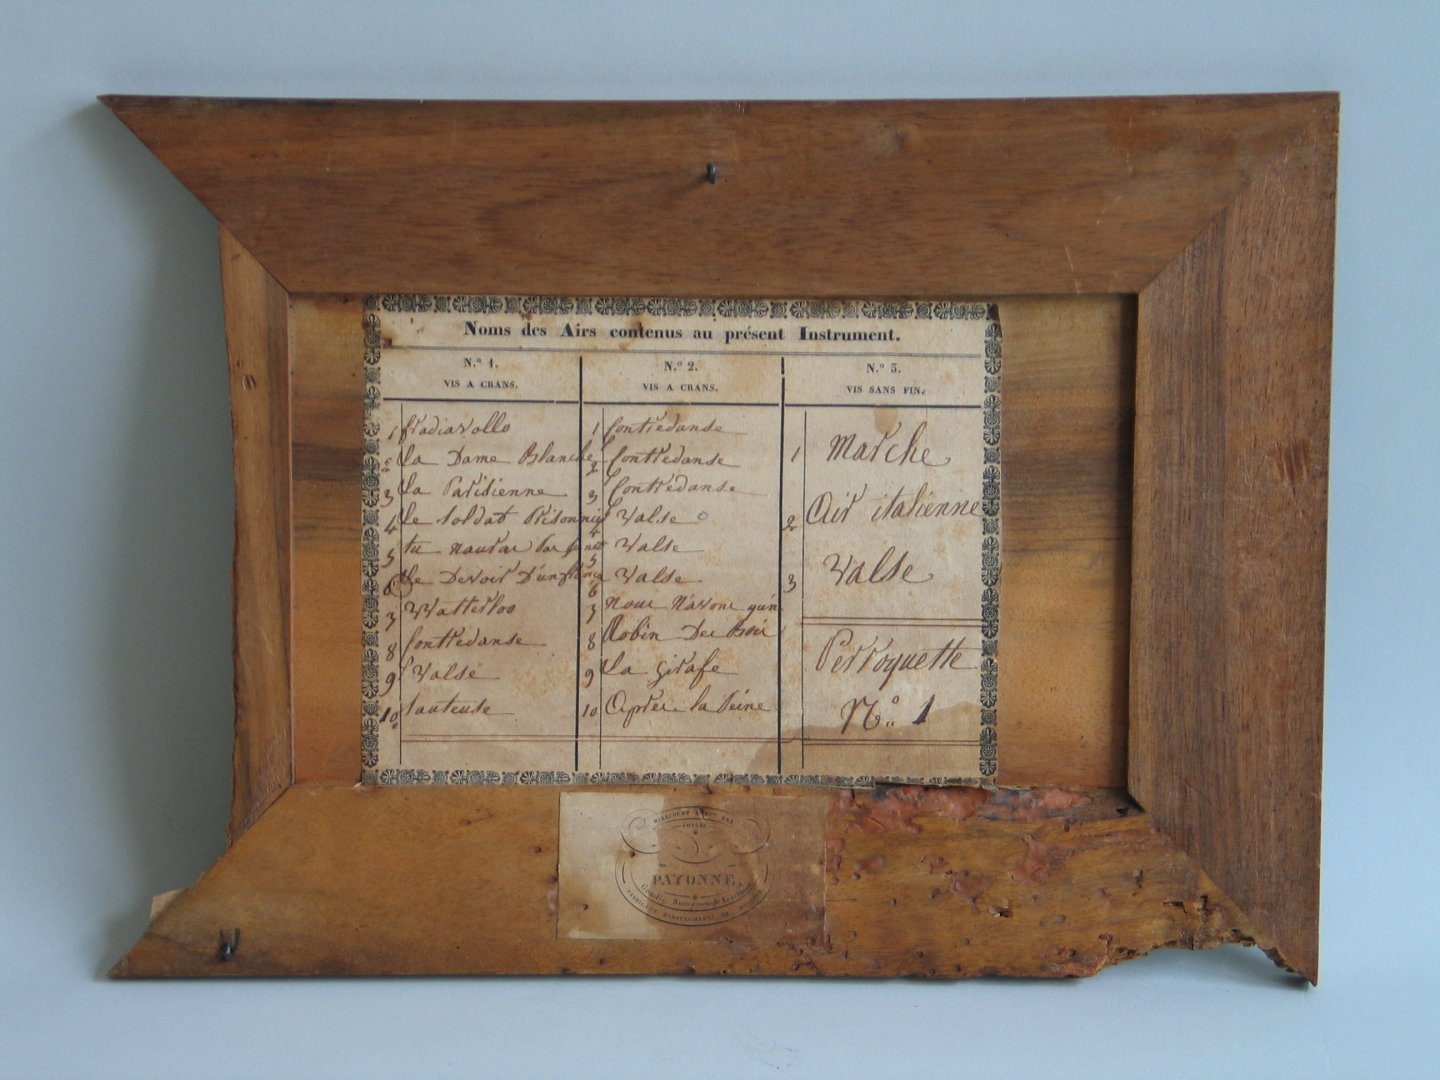 Noms des Airs contenus au présent Instrument.
N.º 1.
VIS A CRANS.
1 fradiavollo
2 la Dame Blanche
3 la Parisienne
4 le soldat Prisonnier
5 tu nauras pas
6 le Devoir D'un
7 Watterloo
8 Contredanse
9 Valse
10 Sauteuse
N.º 2.
VIS A CRANS.
1 Contredanse
2 Contredanse
3 Contredanse
4 Valse
5 Valse
6 Valse
7 nous N'avons qu'un
8 Robin Des Bois
9 la Girafe
10 Après la Peine
N.º 3.
VIS SANS FIN.
1 Marche
2 Air italienne
3 Valse
Perroquette
N.º 1
MIRECOURT DES
VOSGES
PAYONNE,
Successeur de
FABRICANT D'INSTRUMENTS DE